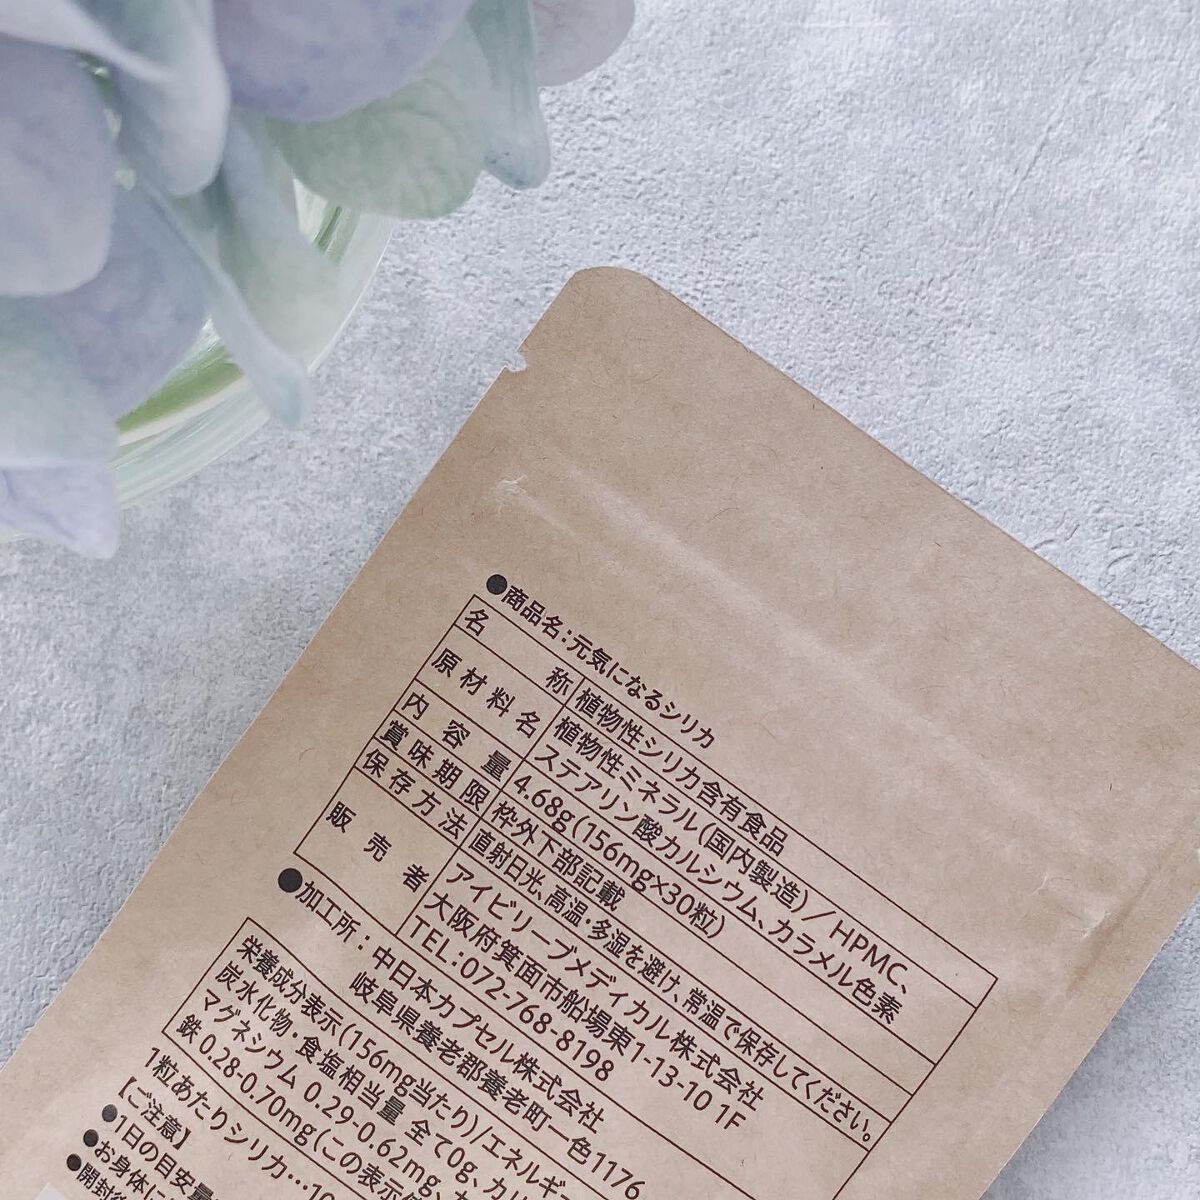 ●商品名：元気になるシリカ
名 称 植物性シリカ含有食品
原材料名 植物性ミネラル(国内製造)／HPMC、
ステアリン酸カルシウム、カラメル色素
内容量 4.68g(156mg×30粒)
賞味期限 枠外下部記載
保存方法 直射日光、高温・多湿を避け、常温で保存してください。
販売者 アイビリーブメディカル株式会社
大阪府箕面市船場東1-13-10 1F
TEL：072-768-8198
●加工所：中日本カプセル株式会社
岐阜県養老郡養老町一色1176
栄養成分表示(156mg当たり)/エネルギー
炭水化物・食塩相当量 全て0g、カリ
マグネシウム 0.29-0.62mg、
鉄 0.28-0.70mg(この表示
1粒あたりシリカ…10
【ご注意】
●1日の目安量
●お身体に
●開封後